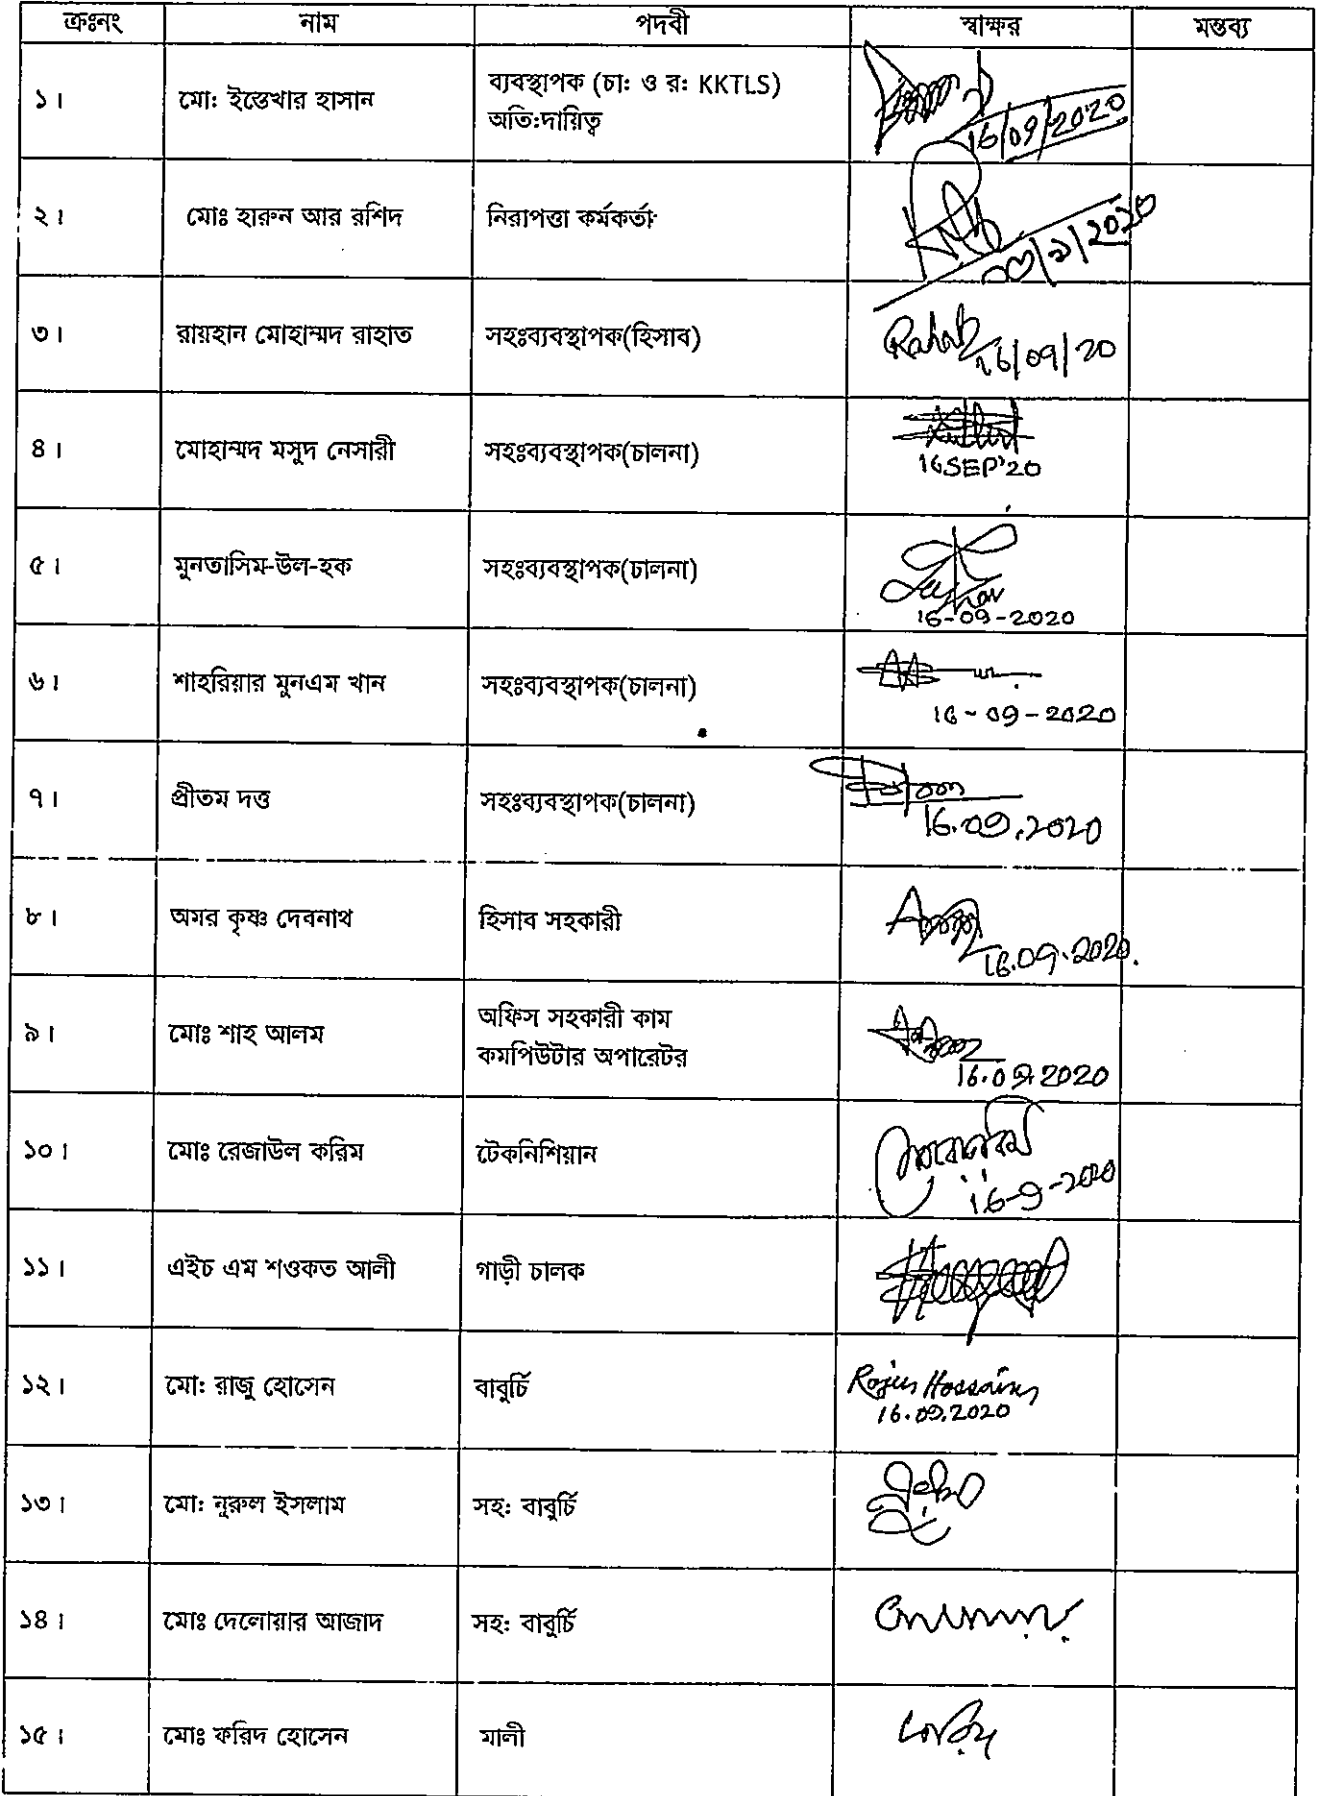 ক্রঃনং নাম পদবী স্বাক্ষর মন্তব্য
১। মো: ইস্তেখার হাসান ব্যবস্থাপক (চা: ও র: KKTLS)
অতি:দায়িত্ব
16/09/2020
২। মোঃ হারুন আর রশিদ নিরাপত্তা কর্মকর্তা
৩। রায়হান মোহাম্মদ রাহাত সহঃব্যবস্থাপক(হিসাব) Rahat 16/09/20
৪। মোহাম্মদ মসুদ নেসারী সহঃব্যবস্থাপক(চালনা)
16 SEP'20
৫। মুনতাসিম-উল-হক সহঃব্যবস্থাপক(চালনা)
16-09-2020
৬। শাহরিয়ার মুনএম খান সহঃব্যবস্থাপক(চালনা)
16-09-2020
৭। প্রীতম দত্ত সহঃব্যবস্থাপক(চালনা)
16.09.2020
৮। অমর কৃষ্ণ দেবনাথ হিসাব সহকারী
16.09.2020.
৯। মোঃ শাহ আলম অফিস সহকারী কাম
কমপিউটার অপারেটর
16.09.2020
১০। মোঃ রেজাউল করিম টেকনিশিয়ান
16-9-2020
১১। এইচ এম শওকত আলী গাড়ী চালক
১২। মো: রাজু হোসেন বাবুর্চি Raju Hossain
16.09.2020
১৩। মো: নূরুল ইসলাম সহ: বাবুর্চি
১৪। মোঃ দেলোয়ার আজাদ সহ: বাবুর্চি
১৫। মোঃ ফরিদ হোসেন মালী